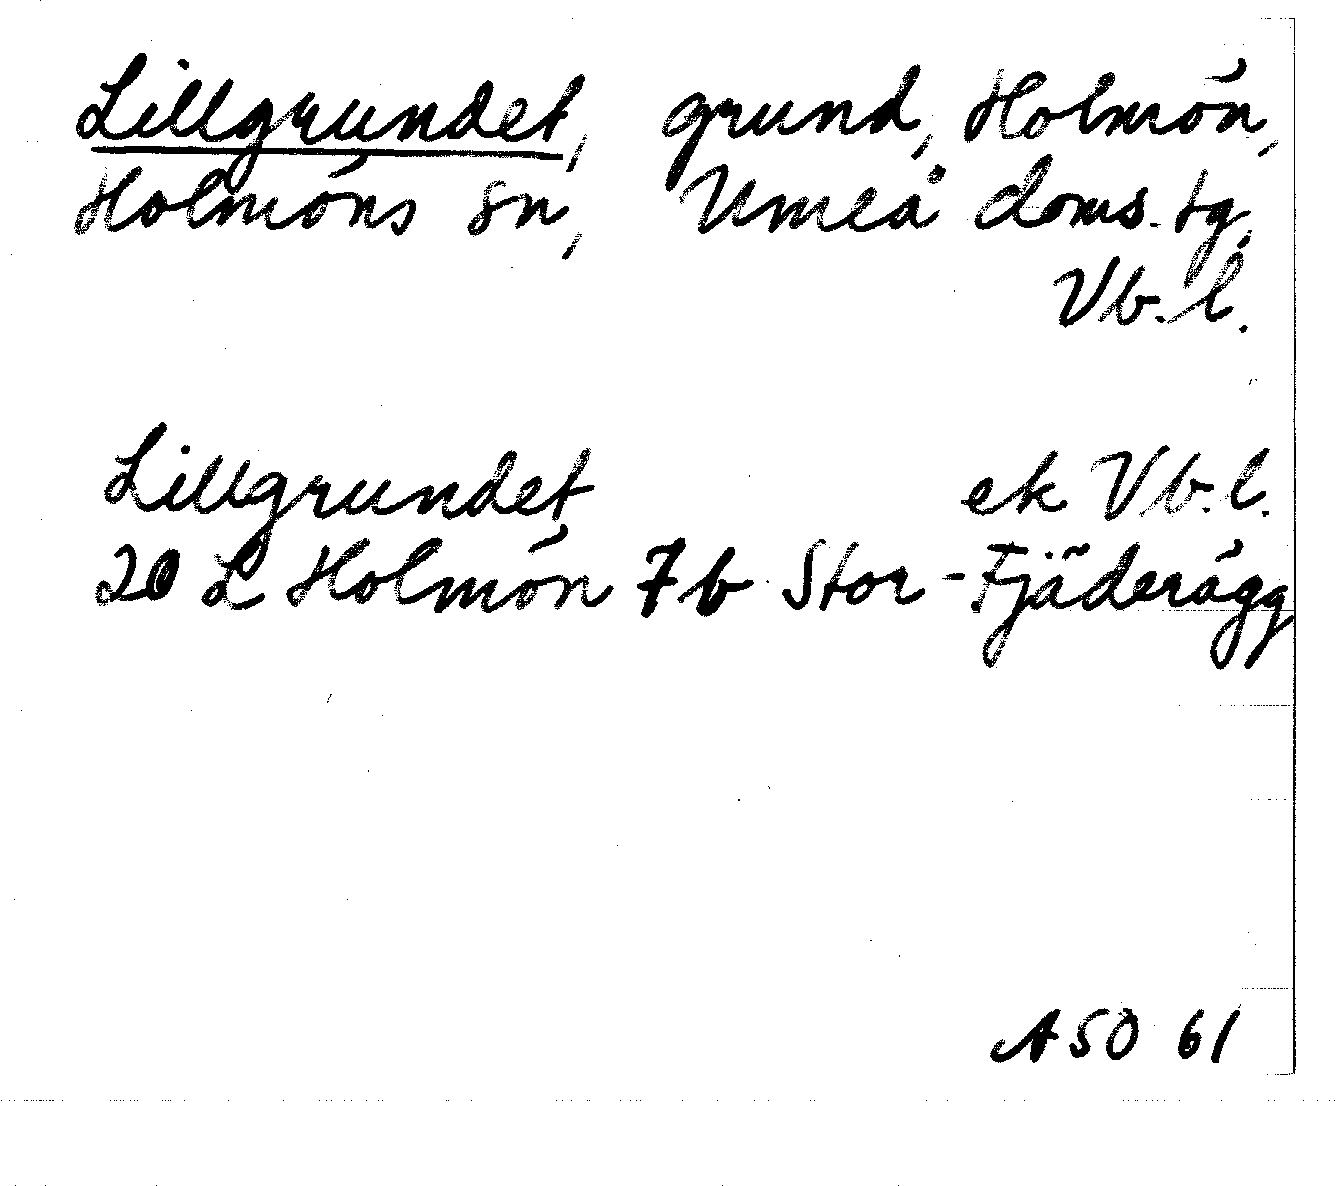 Lillgrundet, grund, Holmön,
Holmöns sn, Umeå doms. tg,
Vb. l.
Lillgrundet ek Vb. l.
20 L Holmön 7b Stor-Fjäderägg
ASO 61